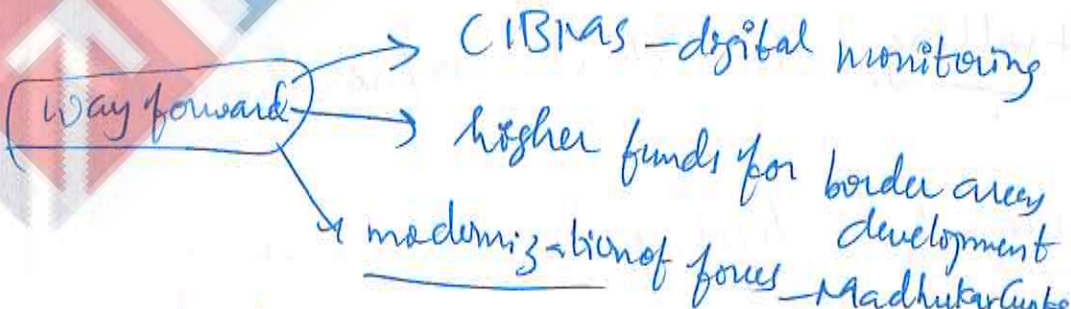 way forward
CIBMAS - digital monitoring
higher funds for border areas
development
modernization of forces - Madhukar Gupta